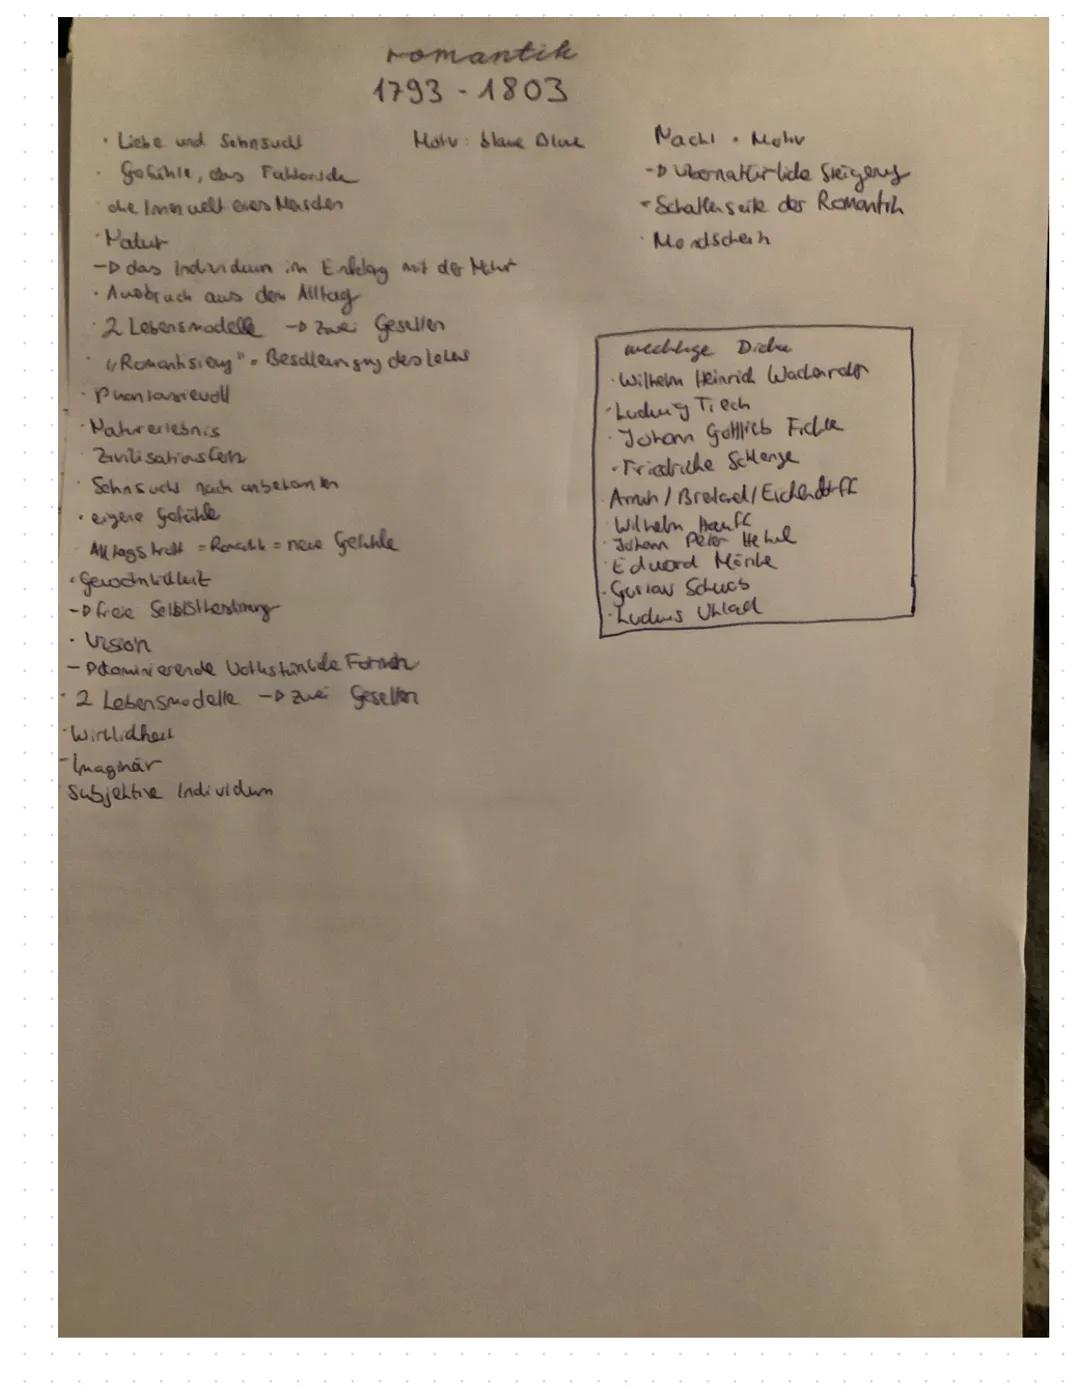 romantik
1793 - 1803
· Liebe und Sehnsucht
Motiv: blaue Blume
· Gefühle, das
die Innenwelt eines Menschen
· Natur
-> das Individuum im Einklang mit der Natur
· Ausbruch aus dem Alltag
· 2 Lebensmodelle -> zwei Gesellen
· "Romantisierung" = des Lebens
· Phantasievoll
· Naturerlebnis
Zivilisationsfern
· Sehnsucht nach unbekannten
· eigene Gefühle
Alltagstrott = = neue Gefühle
· Gewöhnlichkeit
-> freie Selbstbestimmung
· Vision
-> dominierende Volkstümliche Formen
· 2 Lebensmodelle -> zwei Gesellen
· Wirklichkeit
- Imaginär
Subjektive Individuum
Nacht · Motiv
-> übernatürliche Steigerung
- Schattenseite der Romantik
· Mondschein
wichtige Dichter
· Wilhelm Heinrich Wackenroder
· Ludwig Tieck
· Johann Gottlieb Fichte
· Friedriche Schlegel
Arnim / / Eichendorff
· Wilhelm Hauff
· Johann Peter Hebel
· Eduard Mörike
· Gustav Schwab
· Ludwig Uhland